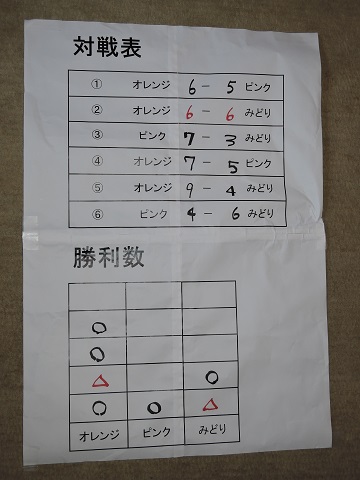 対戦表
① オレンジ 6 － 5 ピンク
② オレンジ 6 － 6 みどり
③ ピンク 7 － 3 みどり
④ オレンジ 7 － 5 ピンク
⑤ オレンジ 9 － 4 みどり
⑥ ピンク 4 － 6 みどり
勝利数
○
○
△ ○
○ ○ △
オレンジ ピンク みどり